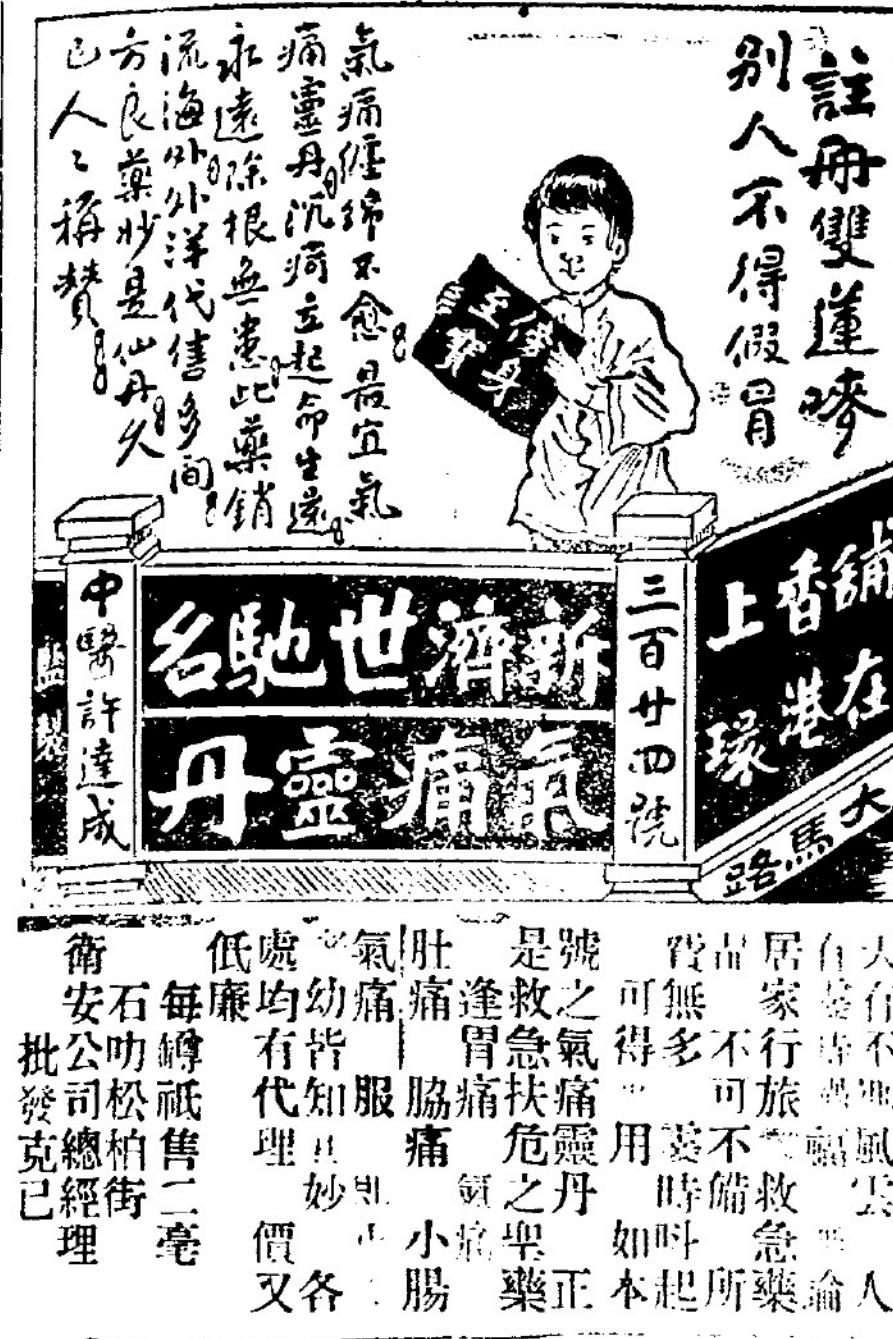 註冊雙蓮嘜
別人不得假冒
傍身
至寶
氣痛纏綿不愈最宜氣
痛靈丹沉疴立起命生還
永遠除根無患此藥銷
流海外外洋代售多間
方良藥妙是仙丹久
已人々稱贊
舖在
香港
上環
大馬路
三百廿四號
新濟世馳名
氣痛靈丹
中醫許達成
監製
天有不測風雲 人
有 禍 論
居家行旅 救急藥
品 不可不備 所
費無多 時叫起
可得 用 如本
號之氣痛靈丹 正
是救急扶危之聖藥
逢胃痛 氣痛
肚痛 脇痛 小腸
氣痛 服
幼皆知其妙 各
處均有代理 價又
低廉
每罇祇售二毫
石叻松柏街
衛安公司總經理
批發克已